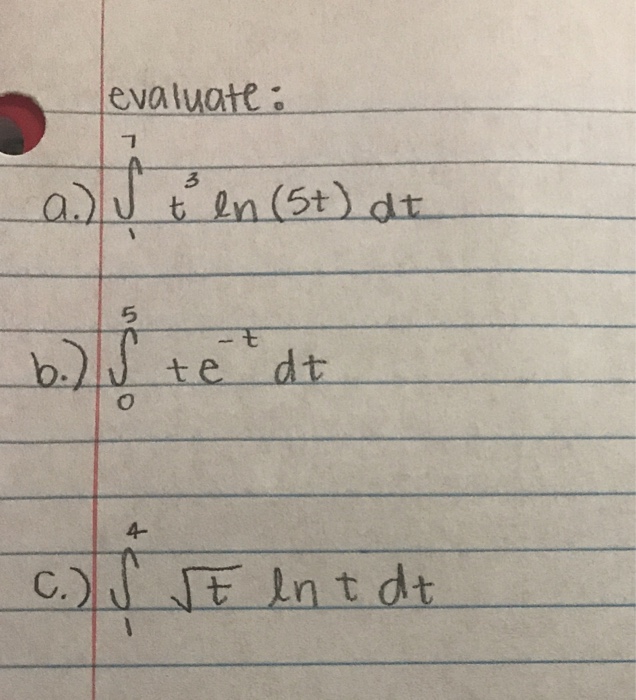 evaluate:
a.) ∫₁⁷ t³ ln (5t) dt
b.) ∫₀⁵ te⁻ᵗ dt
c.) ∫₁⁴ √t ln t dt